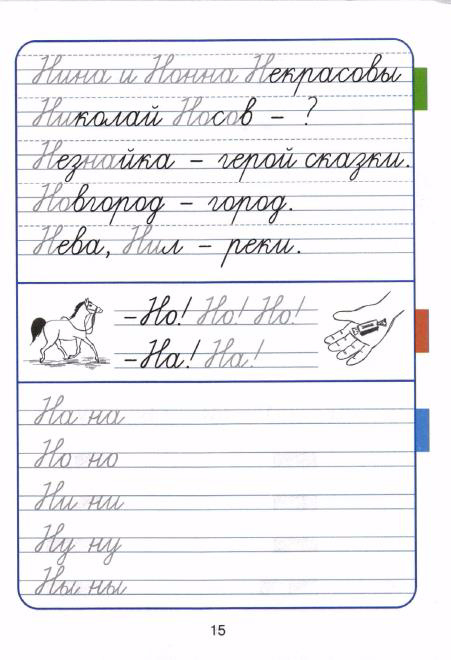 Нина и Нонна Некрасовы
Николай Носов – ?
Незнайка – герой сказки.
Новгород – город.
Нева, Нил – реки.
–Но! Но! Но!
–На! На!
На на
Но но
Ни ни
Ну ну
Ны ны
15